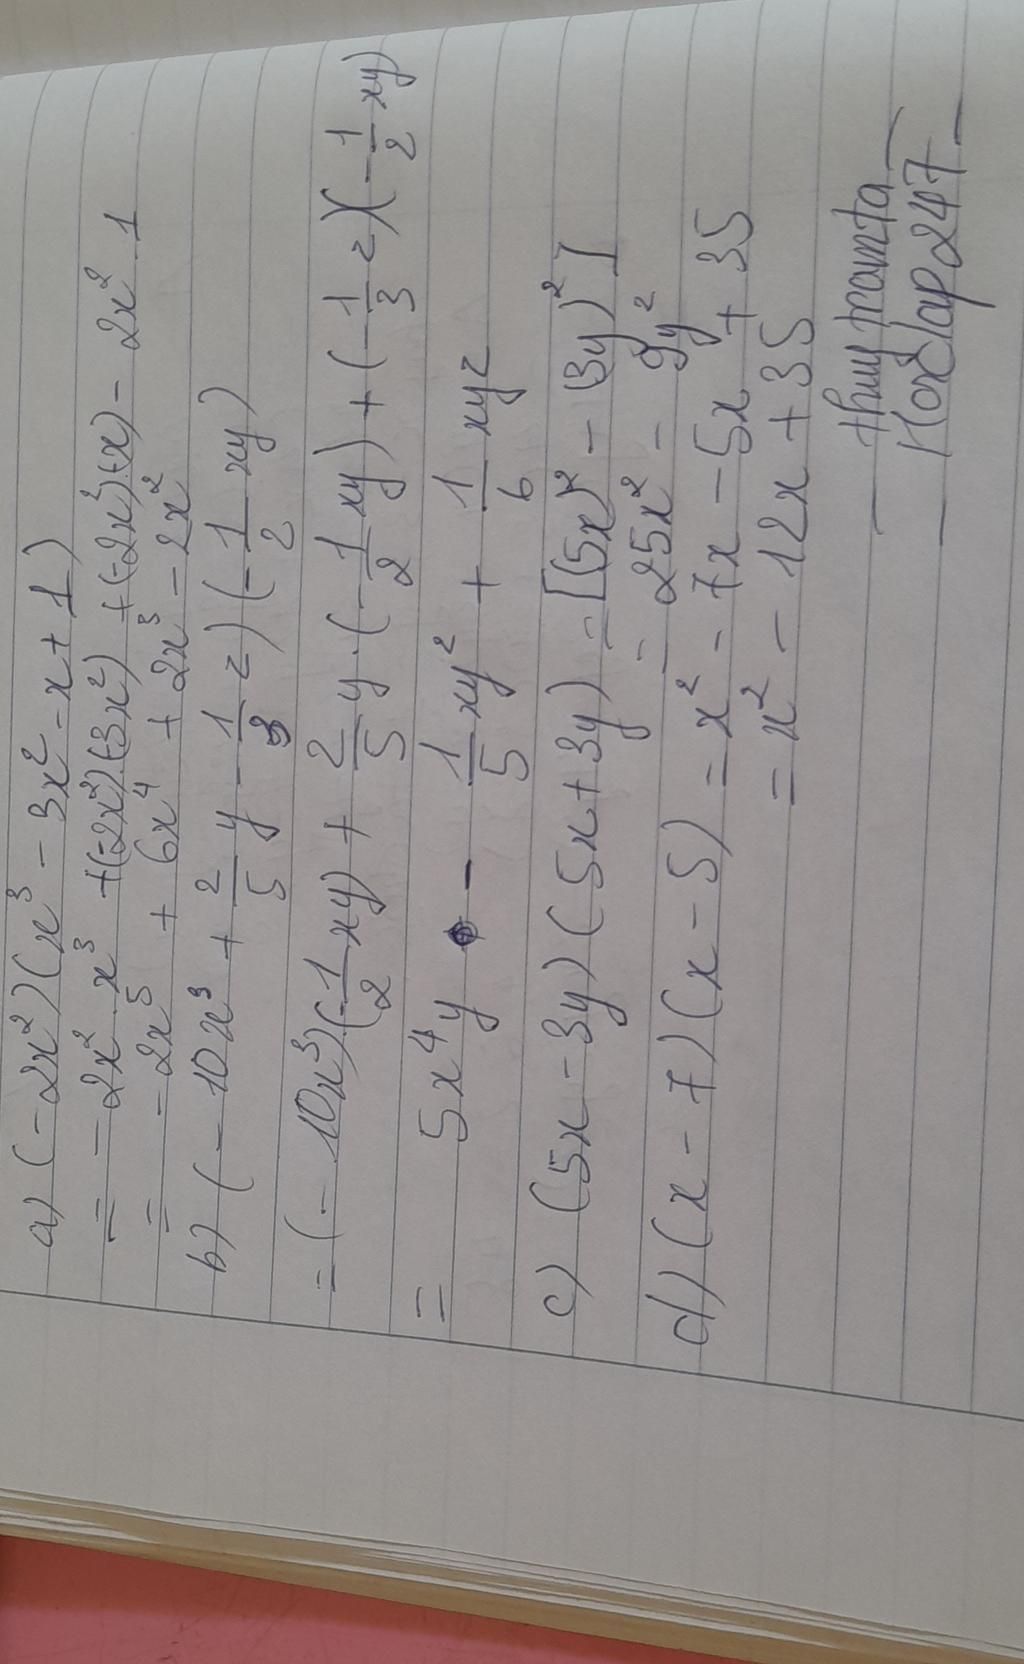 a) (-2x²)(x³ - 3x² - x + 1)
= -2x².x³ + (-2x²).(-3x²) + (-2x²).(-x) - 2x².1
= -2x⁵ + 6x⁴ + 2x³ - 2x²
b) (-10x³ + 2/5 y - 1/3 z)(-1/2 xy)
= (-10x³)(-1/2 xy) + 2/5 y.(-1/2 xy) + (-1/3 z)(-1/2 xy)
= 5x⁴y - 1/5 xy² + 1/6 xyz
c) (5x - 3y)(5x + 3y) = [(5x)² - (3y)²]
= 25x² - 9y²
d) (x - 7)(x - 5) = x² - 7x - 5x + 35
= x² - 12x + 35
- thuytranta -
- Hoclap247 -